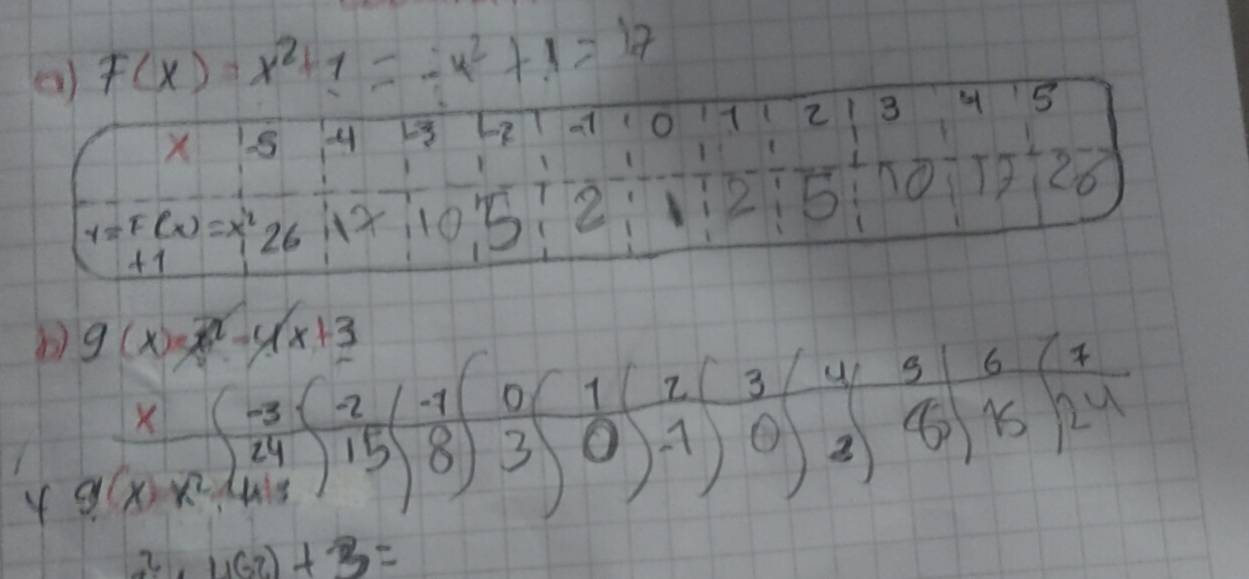 a) F(x) = x²+1 = -4² + 1 = 17
x -5 -4 -3 -2 -1 0 1 2 3 4 5
y=F(x)=x² 26 17 10 5 2 1 2 5 10 17 26
+1
b) g(x)=x²-4x+3
x -3 -2 -1 0 1 2 3 4 5 6 7
24 15 8 3 0 -1 0 3 8 15 24
y g(x) x²
4(-2) + 3 =